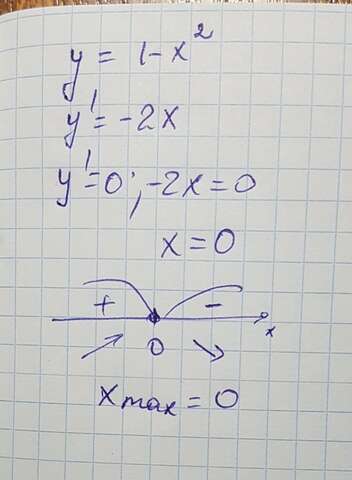 y = 1-x²
y' = -2x
y' = 0; -2x = 0
x = 0
+ -
x
0
xmax = 0